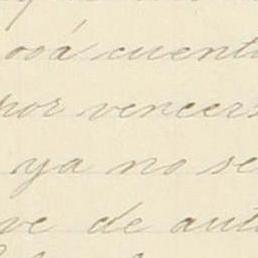 cuent
por vencers
ya no se
ve de aut